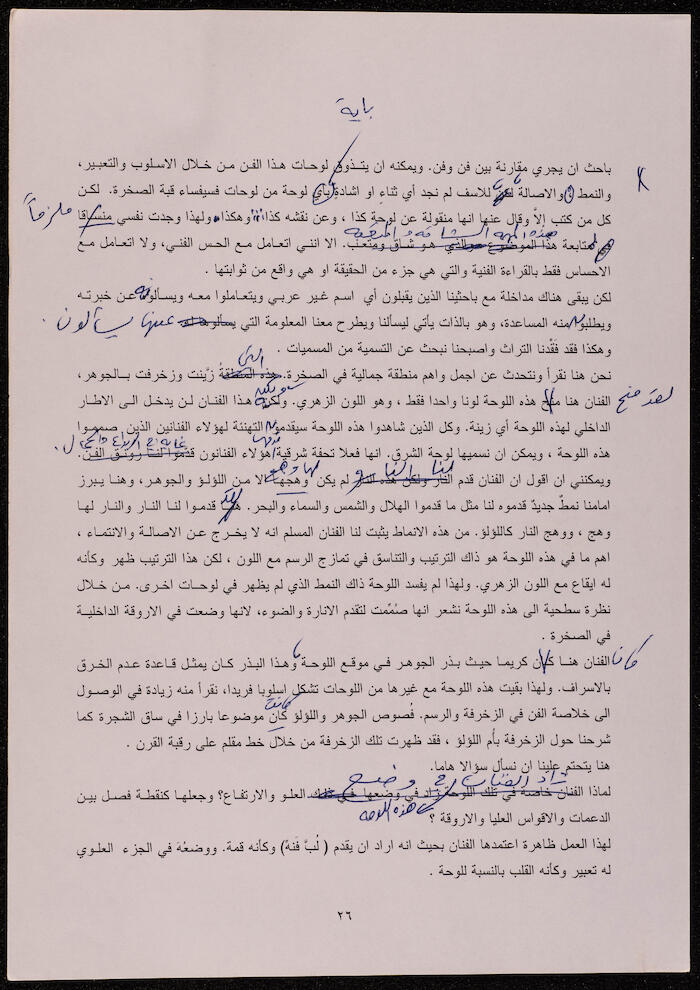 باية
باحث ان يجري مقارنة بين فن وفن. ويمكنه ان يتذوق لوحات هذا الفن من خلال الاسلوب والتعبير،
والنمط والاصالة للاسف لم نجد أي ثناء او اشادة بأي لوحة من لوحات فسيفساء قبة الصخرة. لكن
كل من كتب إلاّ وقال عنها انها منقولة عن لوحة كذا ، وعن نقشه كذا وهكذا ولهذا وجدت نفسي منساقا ملزماً
لمتابعة هذا الموضوع هو شاق ومتعب. الا انني اتعامل مع الحس الفني، ولا اتعامل مع
الاحساس فقط بالقراءة الفنية والتي هي جزء من الحقيقة او هي واقع من ثوابتها .
لكن يبقى هناك مداخلة مع باحثينا الذين يقبلون أي اسم غير عربي ويتعاملوا معه ويسألونه عن خبرته
ويطلبون منه المساعدة، وهو بالذات يأتي ليسألنا ويطرح معنا المعلومة التي عنها يسألون .
وهكذا فقد فَقْدنا التراث واصبحنا نبحث عن التسمية من المسميات .
التي
نحن هنا نقرأ ونتحدث عن اجمل واهم منطقة جمالية في الصخرة. هذه المنطقةُ زيَّنت وزخرفت بالجوهر،
لقد منح
الفنان هنا منح هذه اللوحة لونا واحدا فقط ، وهو اللون الزهري. ولكن هذا الفنان لن يدخل الى الاطار
الداخلي لهذه اللوحة أي زينة. وكل الذين شاهدوا هذه اللوحة سيقدمون التهنئة لهؤلاء الفنانين الذين صمموا
هذه اللوحة ، ويمكن ان نسميها لوحة الشرق. انها فعلا تحفة شرقية هؤلاء الفنانون قدموا لنا رونق الفن.
ويمكنني ان اقول ان الفنان قدم لنا النار لم يكن وهجها الا من اللؤلؤ والجوهر، وهنا يبرز
امامنا نمطٌ جديدٌ قدموه لنا مثل ما قدموا الهلال والشمس والسماء والبحر. قدموا لنا النار والنار لها
وهج ، ووهج النار كاللؤلؤ. من هذه الانماط يثبت لنا الفنان المسلم انه لا يخرج عن الاصالة والانتماء ،
اهم ما في هذه اللوحة هو ذاك الترتيب والتناسق في تمازج الرسم مع اللون ، لكن هذا الترتيب ظهر وكأنه
له ايقاع مع اللون الزهري. ولهذا لم يفسد اللوحة ذاك النمط الذي لم يظهر في لوحات اخرى. من خلال
نظرة سطحية الى هذه اللوحة نشعر انها صُمّمت لتقدم الانارة والضوء، لانها وضعت في الاروقة الداخلية
في الصخرة .
كان
الفنان هنا كان كريما حيث بذر الجوهر في موقع اللوحة وهذا البذر كان يمثل قاعدة عدم الخرق
بالاسراف. ولهذا بقيت هذه اللوحة مع غيرها من اللوحات تشكل اسلوبا فريدا، نقرأ منه زيادة في الوصول
كانت
الى خلاصة الفن في الزخرفة والرسم. فُصوص الجوهر واللؤلؤ كان موضوعا بارزا في ساق الشجرة كما
شرحنا حول الزخرفة بأم اللؤلؤ ، فقد ظهرت تلك الزخرفة من خلال خط مقلم على رقبة القرن .
هنا يتحتم علينا ان نسأل سؤالا هاما.
زاد الفنان في وضع
لماذا الفنان خاصة في تلك اللوحة زاد في وضعها في ذلك العلو والارتفاع؟ وجعلها كنقطة فصل بين
هذه اللوحة
الدعمات والاقواس العليا والاروقة ؟
لهذا العمل ظاهرة اعتمدها الفنان بحيث انه اراد ان يقدم ( لُبَّ فَنهْ) وكأنه قمة. ووضعْهَ في الجزء العلوي
له تعبير وكأنه القلب بالنسبة للوحة .
٢٦